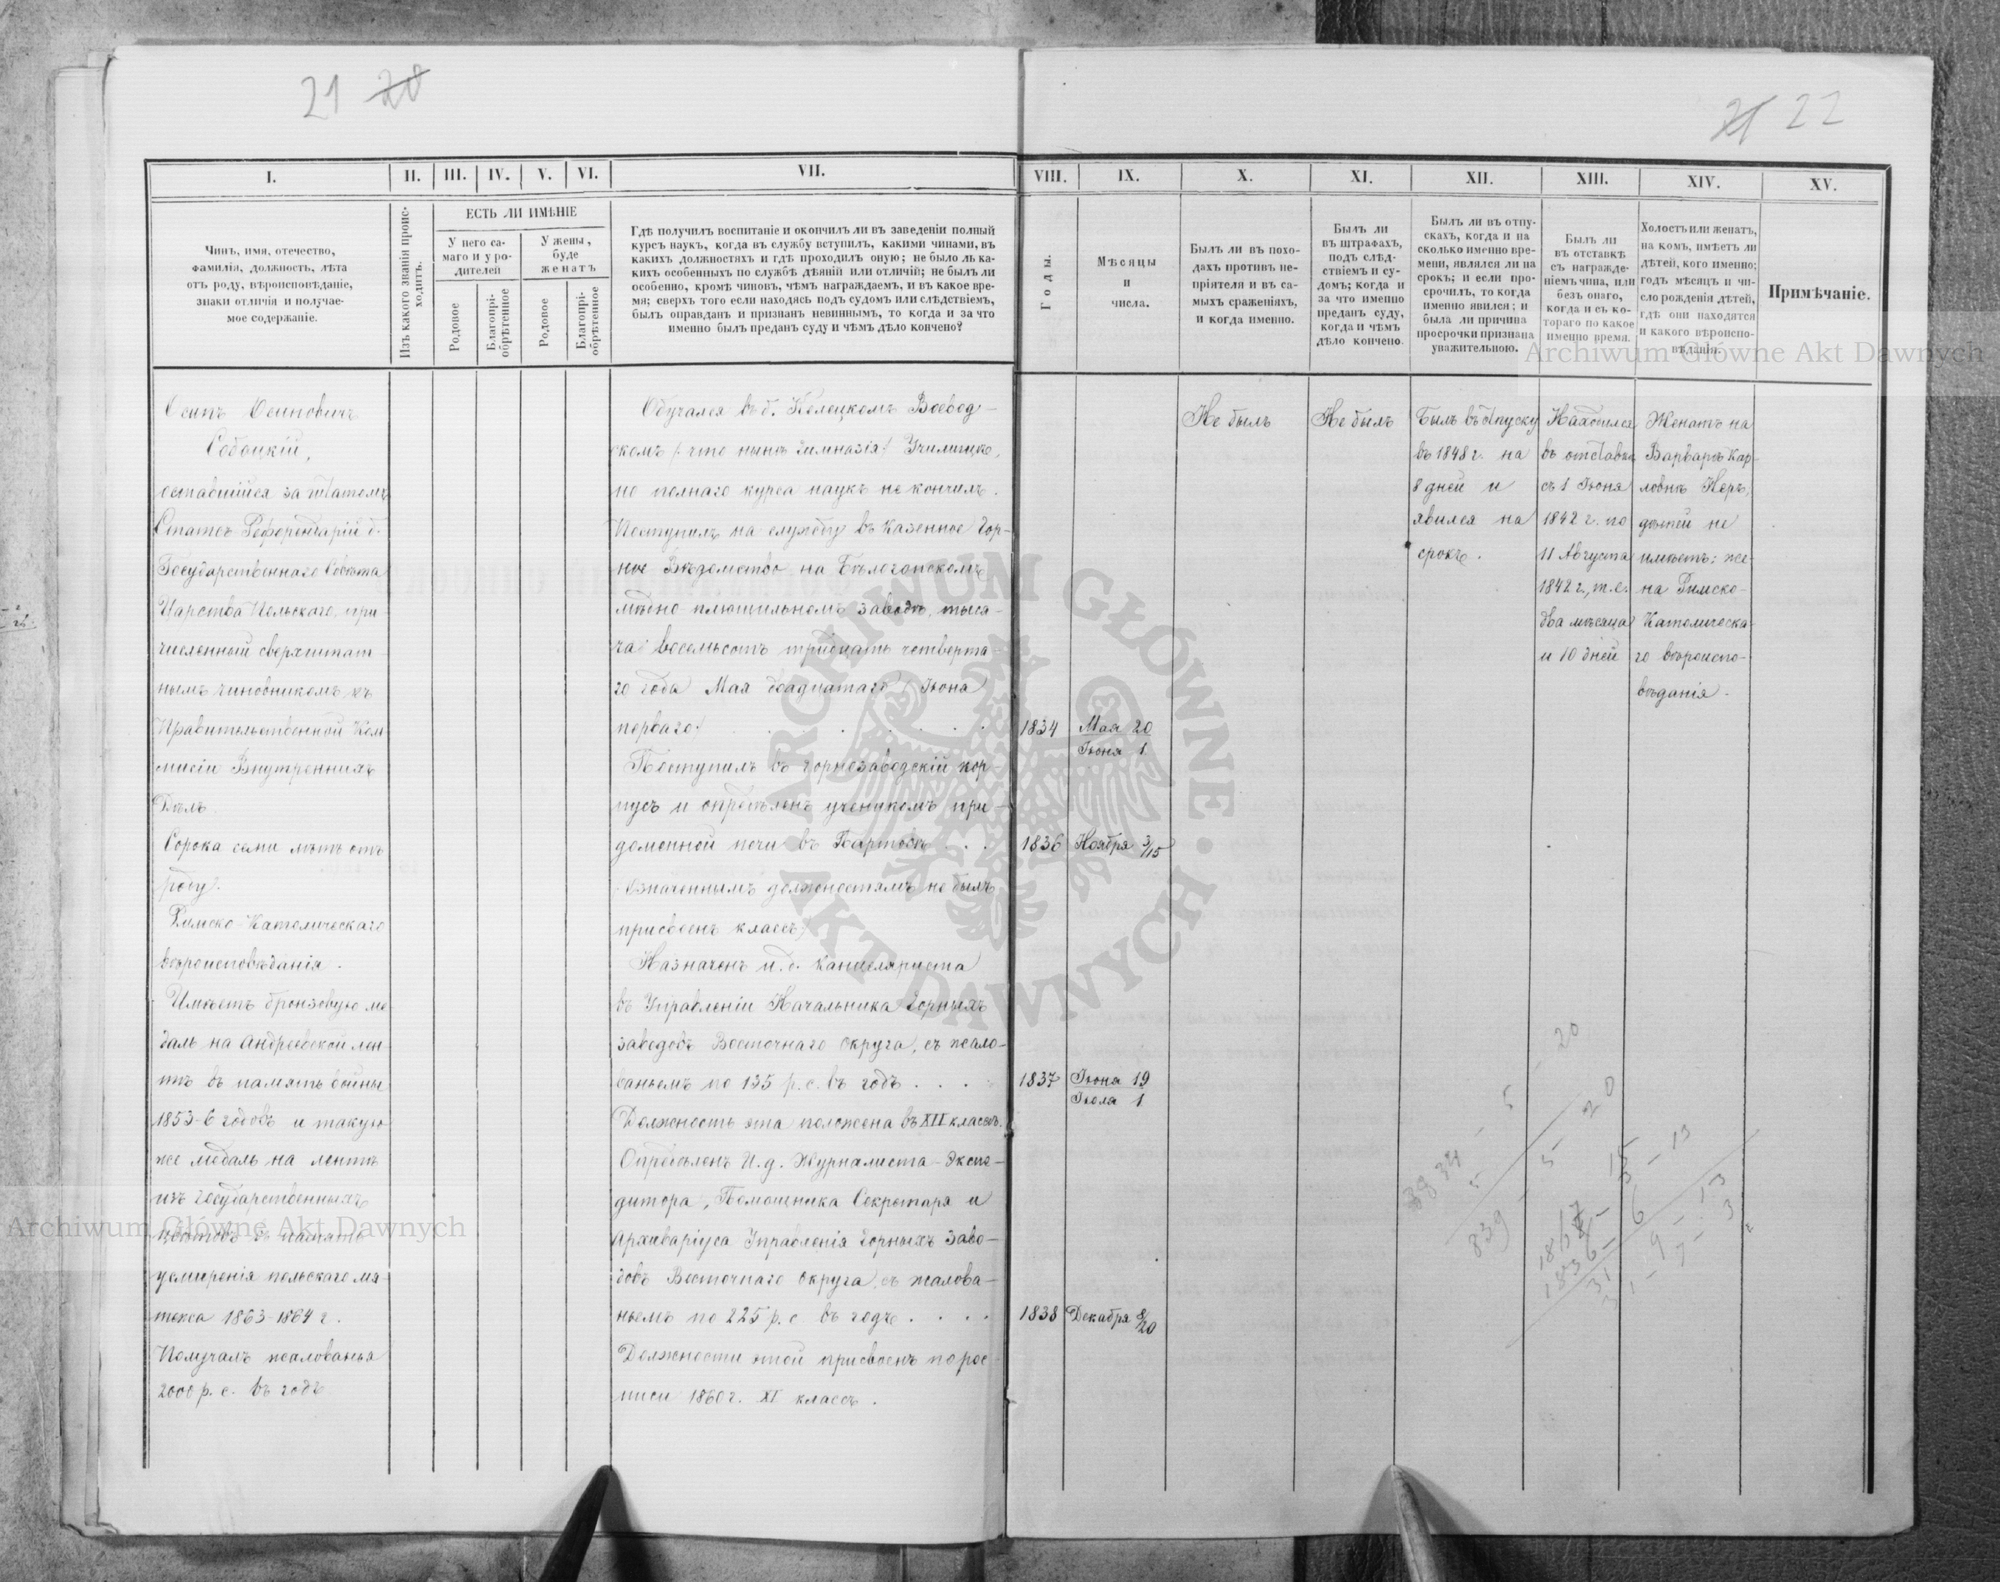 21 20
21 22
I.
II.
III.
IV.
V.
VI.
VII.
VIII.
IX.
X.
XI.
XII.
XIII.
XIV.
XV.
Чинъ, имя, отечество,
фамилія, должность, лѣта
отъ роду, вѣроисповѣданіе,
знаки отличія и получае-
мое содержаніе.
Изъ какого званія проис-
ходитъ.
ЕСТЬ ЛИ ИМѢНІЕ
У него са-
маго и у ро-
дителей
У жены,
буде
женатъ
Родовое
Благопрі-
обрѣтенное
Родовое
Благопрі-
обрѣтенное
Гдѣ получилъ воспитаніе и окончилъ ли въ заведеніи полный
курсъ наукъ, когда въ службу вступилъ, какими чинами, въ
какихъ должностяхъ и гдѣ проходилъ оную; не было ль ка-
кихъ особенныхъ по службѣ дѣяній или отличій; не былъ ли
особенно, кромѣ чиновъ, чѣмъ награждаемъ, и въ какое вре-
мя; сверхъ того если находясь подъ судомъ или слѣдствіемъ,
былъ оправданъ и признанъ невиннымъ, то когда и за что
именно былъ преданъ суду и чѣмъ дѣло кончено?
Годы.
Мѣсяцы
и
числа.
Былъ ли въ похо-
дахъ противъ не-
пріятеля и въ са-
мыхъ сраженіяхъ,
и когда именно.
Былъ ли
въ штрафахъ,
подъ слѣд-
ствіемъ и су-
домъ; когда и
за что именно
преданъ суду,
когда и чѣмъ
дѣло кончено.
Былъ ли въ отпу-
скахъ, когда и на
сколько именно вре-
мени, являлся ли на
срокъ; и если про-
срочилъ, то когда
именно явился; и
была ли причина
просрочки признана
уважительною.
Былъ ли
въ отставкѣ
съ награжде-
ніемъ чина, или
безъ онаго,
когда и съ ко-
тораго по какое
именно время.
Холостъ или женатъ,
на комъ, имѣетъ ли
дѣтей, кого именно;
годъ мѣсяцъ и чи-
сло рожденія дѣтей,
гдѣ они находятся
и какого вѣроиспо-
вѣданія.
Примѣчаніе.
Осипъ Осиповичъ
Собоцкій,
оставшійся за штатомъ
Статсъ-Референдарій б.
Государственнаго Совѣта
Царства Польскаго, при-
численный сверхштат-
нымъ чиновникомъ къ
Правительственной Ком-
мисіи Внутреннихъ
Дѣлъ.
Сорока семи лѣтъ отъ
роду.
Римско-Католическаго
вѣроисповѣданія.
Имѣетъ бронзовую ме-
даль на Андреевской лен-
тѣ въ память войны
1853-6 годовъ и такую
же медаль на лентѣ
изъ Государственныхъ
цвѣтовъ въ память
усмиренія польскаго мя-
тежа 1863-1864 г.
Получалъ жалованья
2000 р. с. въ годъ
Обучался въ б. Келецкомъ Воевод-
скомъ (что нынѣ Гимназія) Училищѣ,
но полнаго курса наукъ не кончилъ.
Поступилъ на службу въ казенное Гор-
ное Вѣдомство на Бѣлогонскомъ
мѣдно плющильномъ заводѣ, тыся-
ча восемьсотъ тридцать четверта-
го года Мая двадцатаго (Іюня
перваго)
1834 Мая 20
Іюня 1
Поступилъ въ горнозаводскій кор-
пусъ и опредѣленъ ученикомъ при
доменной печи въ . . .
1836 Ноября 3/15
Означеннымъ должностямъ не былъ
присвоенъ классъ)
Назначенъ и. д. канцеляриста
въ Управленіи Начальника Горныхъ
заводовъ Восточнаго округа, съ жало-
ваньемъ по 135 р. с. въ годъ . . . .
1837 Іюня 19
Іюля 1
Должность эта положена въ XII классѣ.
Опредѣленъ И. д. Журналиста-Экспе-
дитора, Помощника Секретаря и
Архиваріуса Управленія Горныхъ Заво-
довъ Восточнаго округа, съ жалова-
ньемъ по 225 р. с въ годъ . . . .
1838 Декабря 8/20
Должности этой присвоенъ по рос-
писи 1860 г. XI классъ.
Не былъ
Не былъ
Былъ въ отпуску
въ 1848 г. на
8 дней и
явился на
срокъ.
Находился
въ отставкѣ
съ 1 Іюня
1842 г. по
11 Августа
1842 г., т. е.
два мѣсяца
и 10 дней
Женатъ на
Варварѣ Кар-
ловнѣ Керъ,
дѣтей не
имѣетъ; же-
на Римско-
Католическа-
го вѣроиспо-
вѣданія.
Archiwum Główne Akt Dawnych
Archiwum Główne Akt Dawnych
ARCHIWUM GŁÓWNE • AKT DAWNYCH •